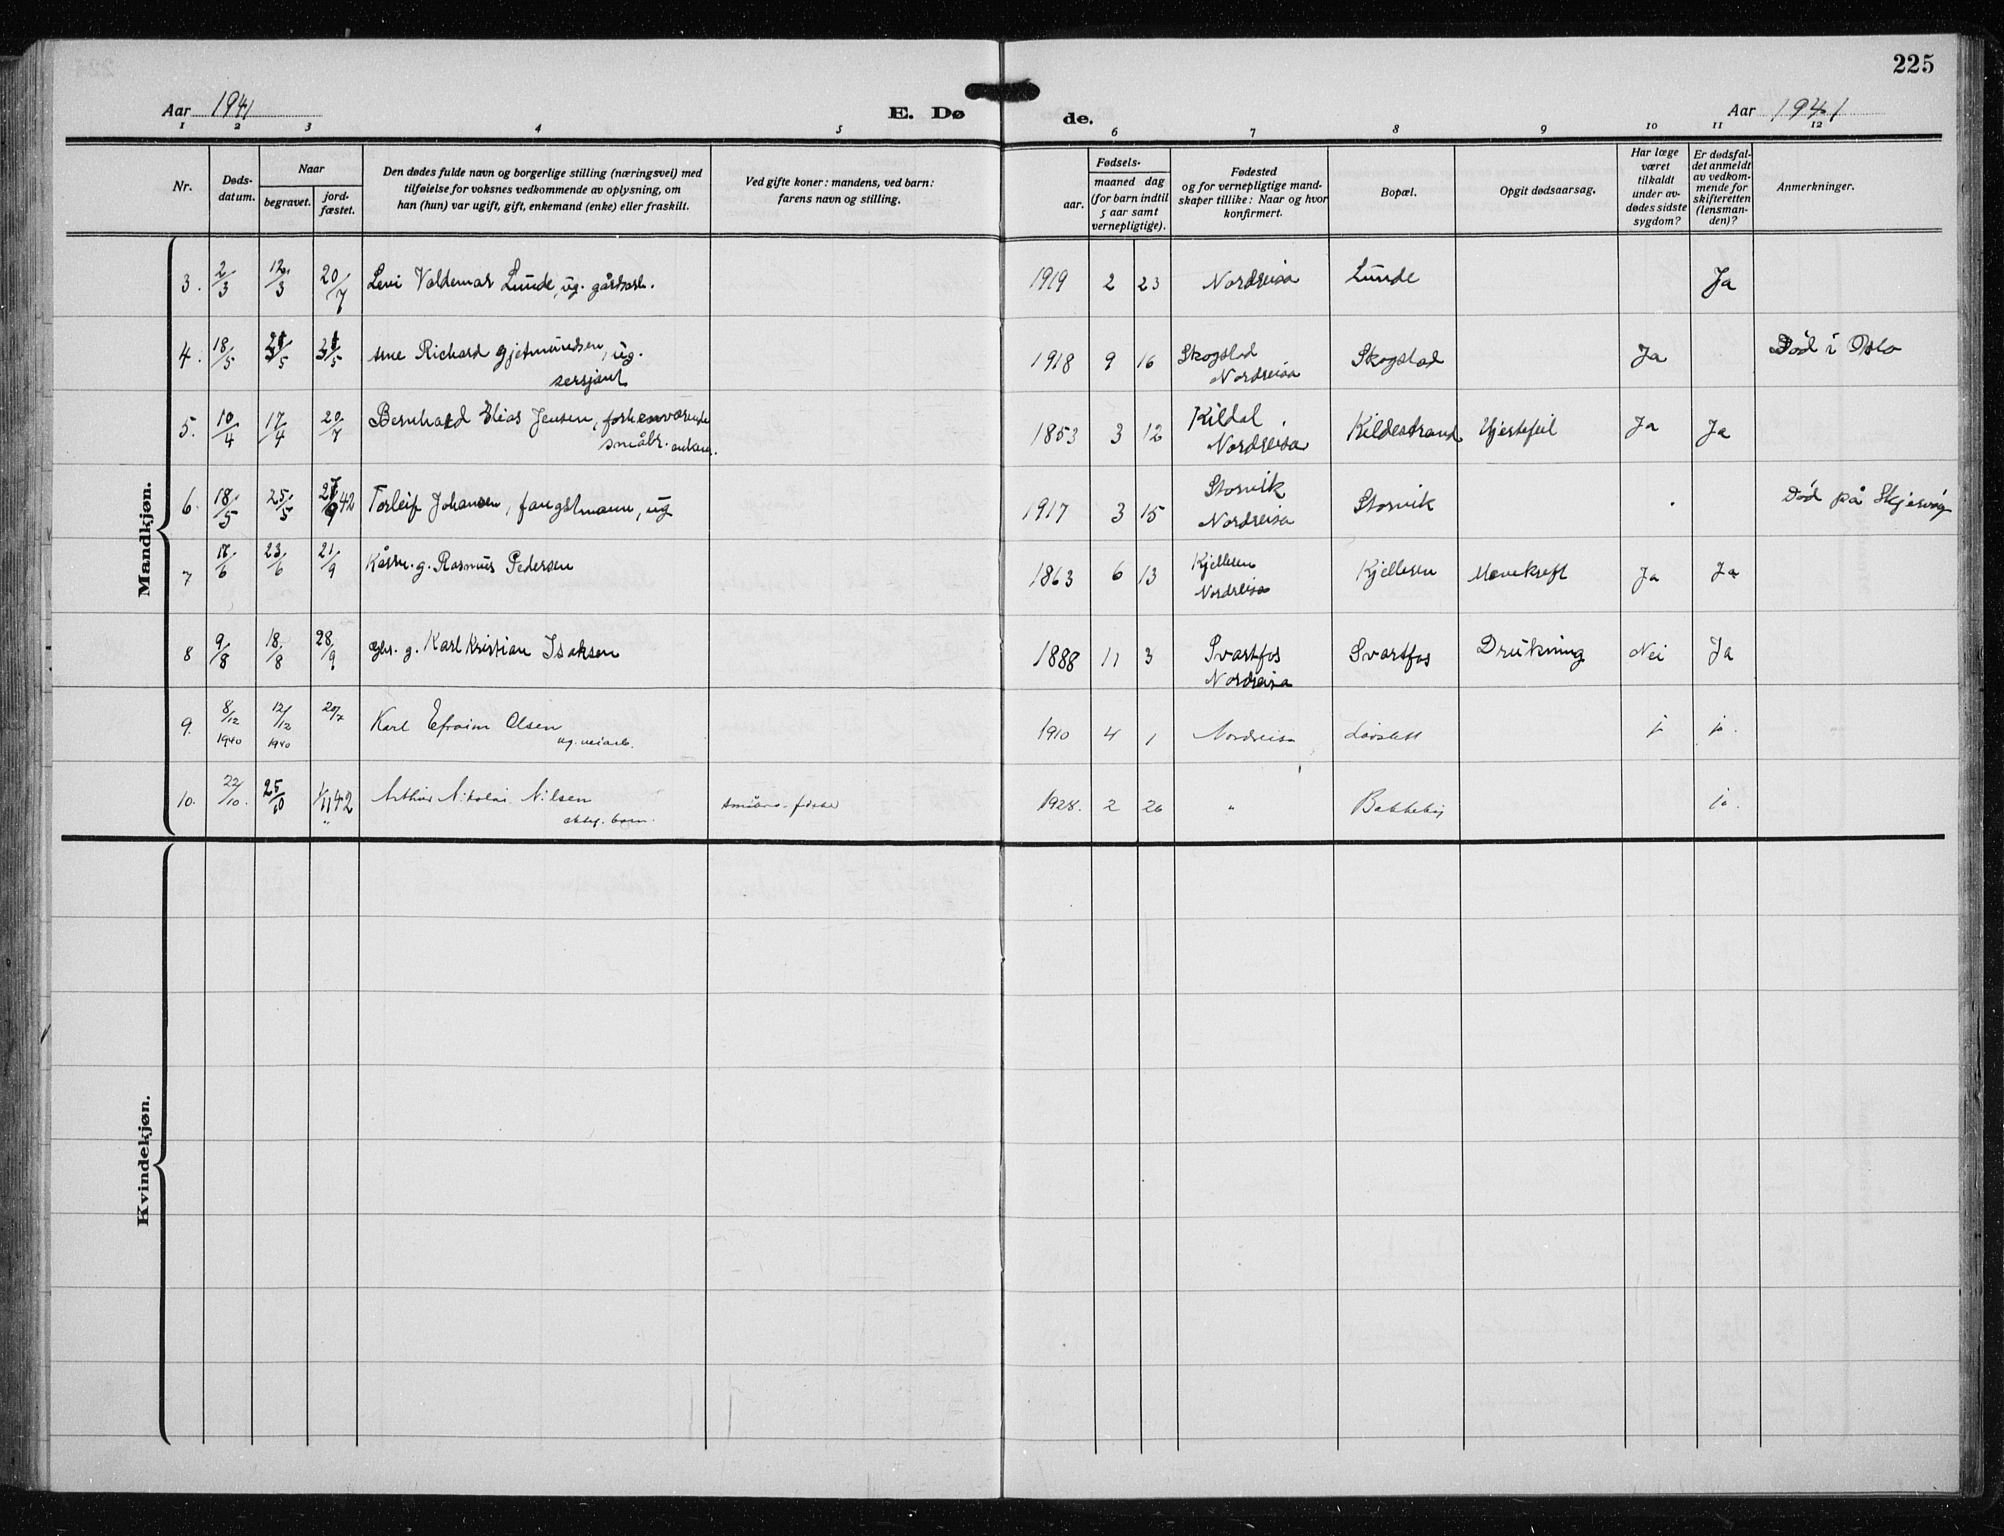 225
Aar 1941
E. Dø
de.
Aar 1941
1 2 3 4 5 6 7 8 9 10 11 12
Nr.
Døds-
datum.
Naar
begravet.
jord-
fæstet.
Den dødes fulde navn og borgerlige stilling (næringsvei) med
tilføielse for voksnes vedkommende av oplysning, om
han (hun) var ugift, gift, enkemand (enke) eller fraskilt.
Ved gifte koner: mandens, ved barn:
farens navn og stilling.
Fødsels-
aar.
maaned dag
(for barn indtil
5 aar samt
vernepligtige).
Fødested
og for vernepligtige mand-
skaper tillike: Naar og hvor
konfirmert.
Bopæl.
Opgit dødsaarsag.
Har læge
været
tilkaldt
under av-
dødes sidste
sygdom?
Er dødsfal-
det anmeldt
av vedkom-
mende for
skifteretten
(lensman-
den)?
Anmerkninger.
Mandkjøn.
3. 2/3 12/3 20/7 Levi Valdemar Lunde, ug. gårdsarb. 1919 2 23 Nordreisa Lunde Ja
4. 18/5 Arne Richard Gjetmundsen, ug. 1918 9 16 Skogstad Skogstad Ja Død i Oslo
sersjant Nordreisa
5. 10/4 17/4 20/7 Bernhard Elias Jensen, forhenværende 1853 3 12 Kildal Kildestrand Hjertefeil Ja Ja
småbr. enkem. Nordreisa
6. 18/5 25/5 42 Torleif Johansen, fangstmann, ug 1917 3 15 Storvik Storvik Død på Skjervøy
Nordreisa
7 17/6 23/6 21/9 g. Rasmus Pedersen 1863 6 13 Kjelleren Kjelleren Mavekreft Ja Ja
Nordreisa
8 9/8 18/8 28/9 g. Karl Kristian Isaksen 1888 11 3 Svartfos Svartfos Drukning Nei Ja
Nordreisa
9. 8/12 12/12 20/7 Karl Efraim Olsen 1910 4 1 Nordreisa j. ja.
1940 1940 ug. veiarb.
10. 22/10. 25/10 1/11 42 Arthur Nikolai Nilsen 1928. 2 26 " Bakkeby ja.
ektef. barn.
Kvindekjøn.